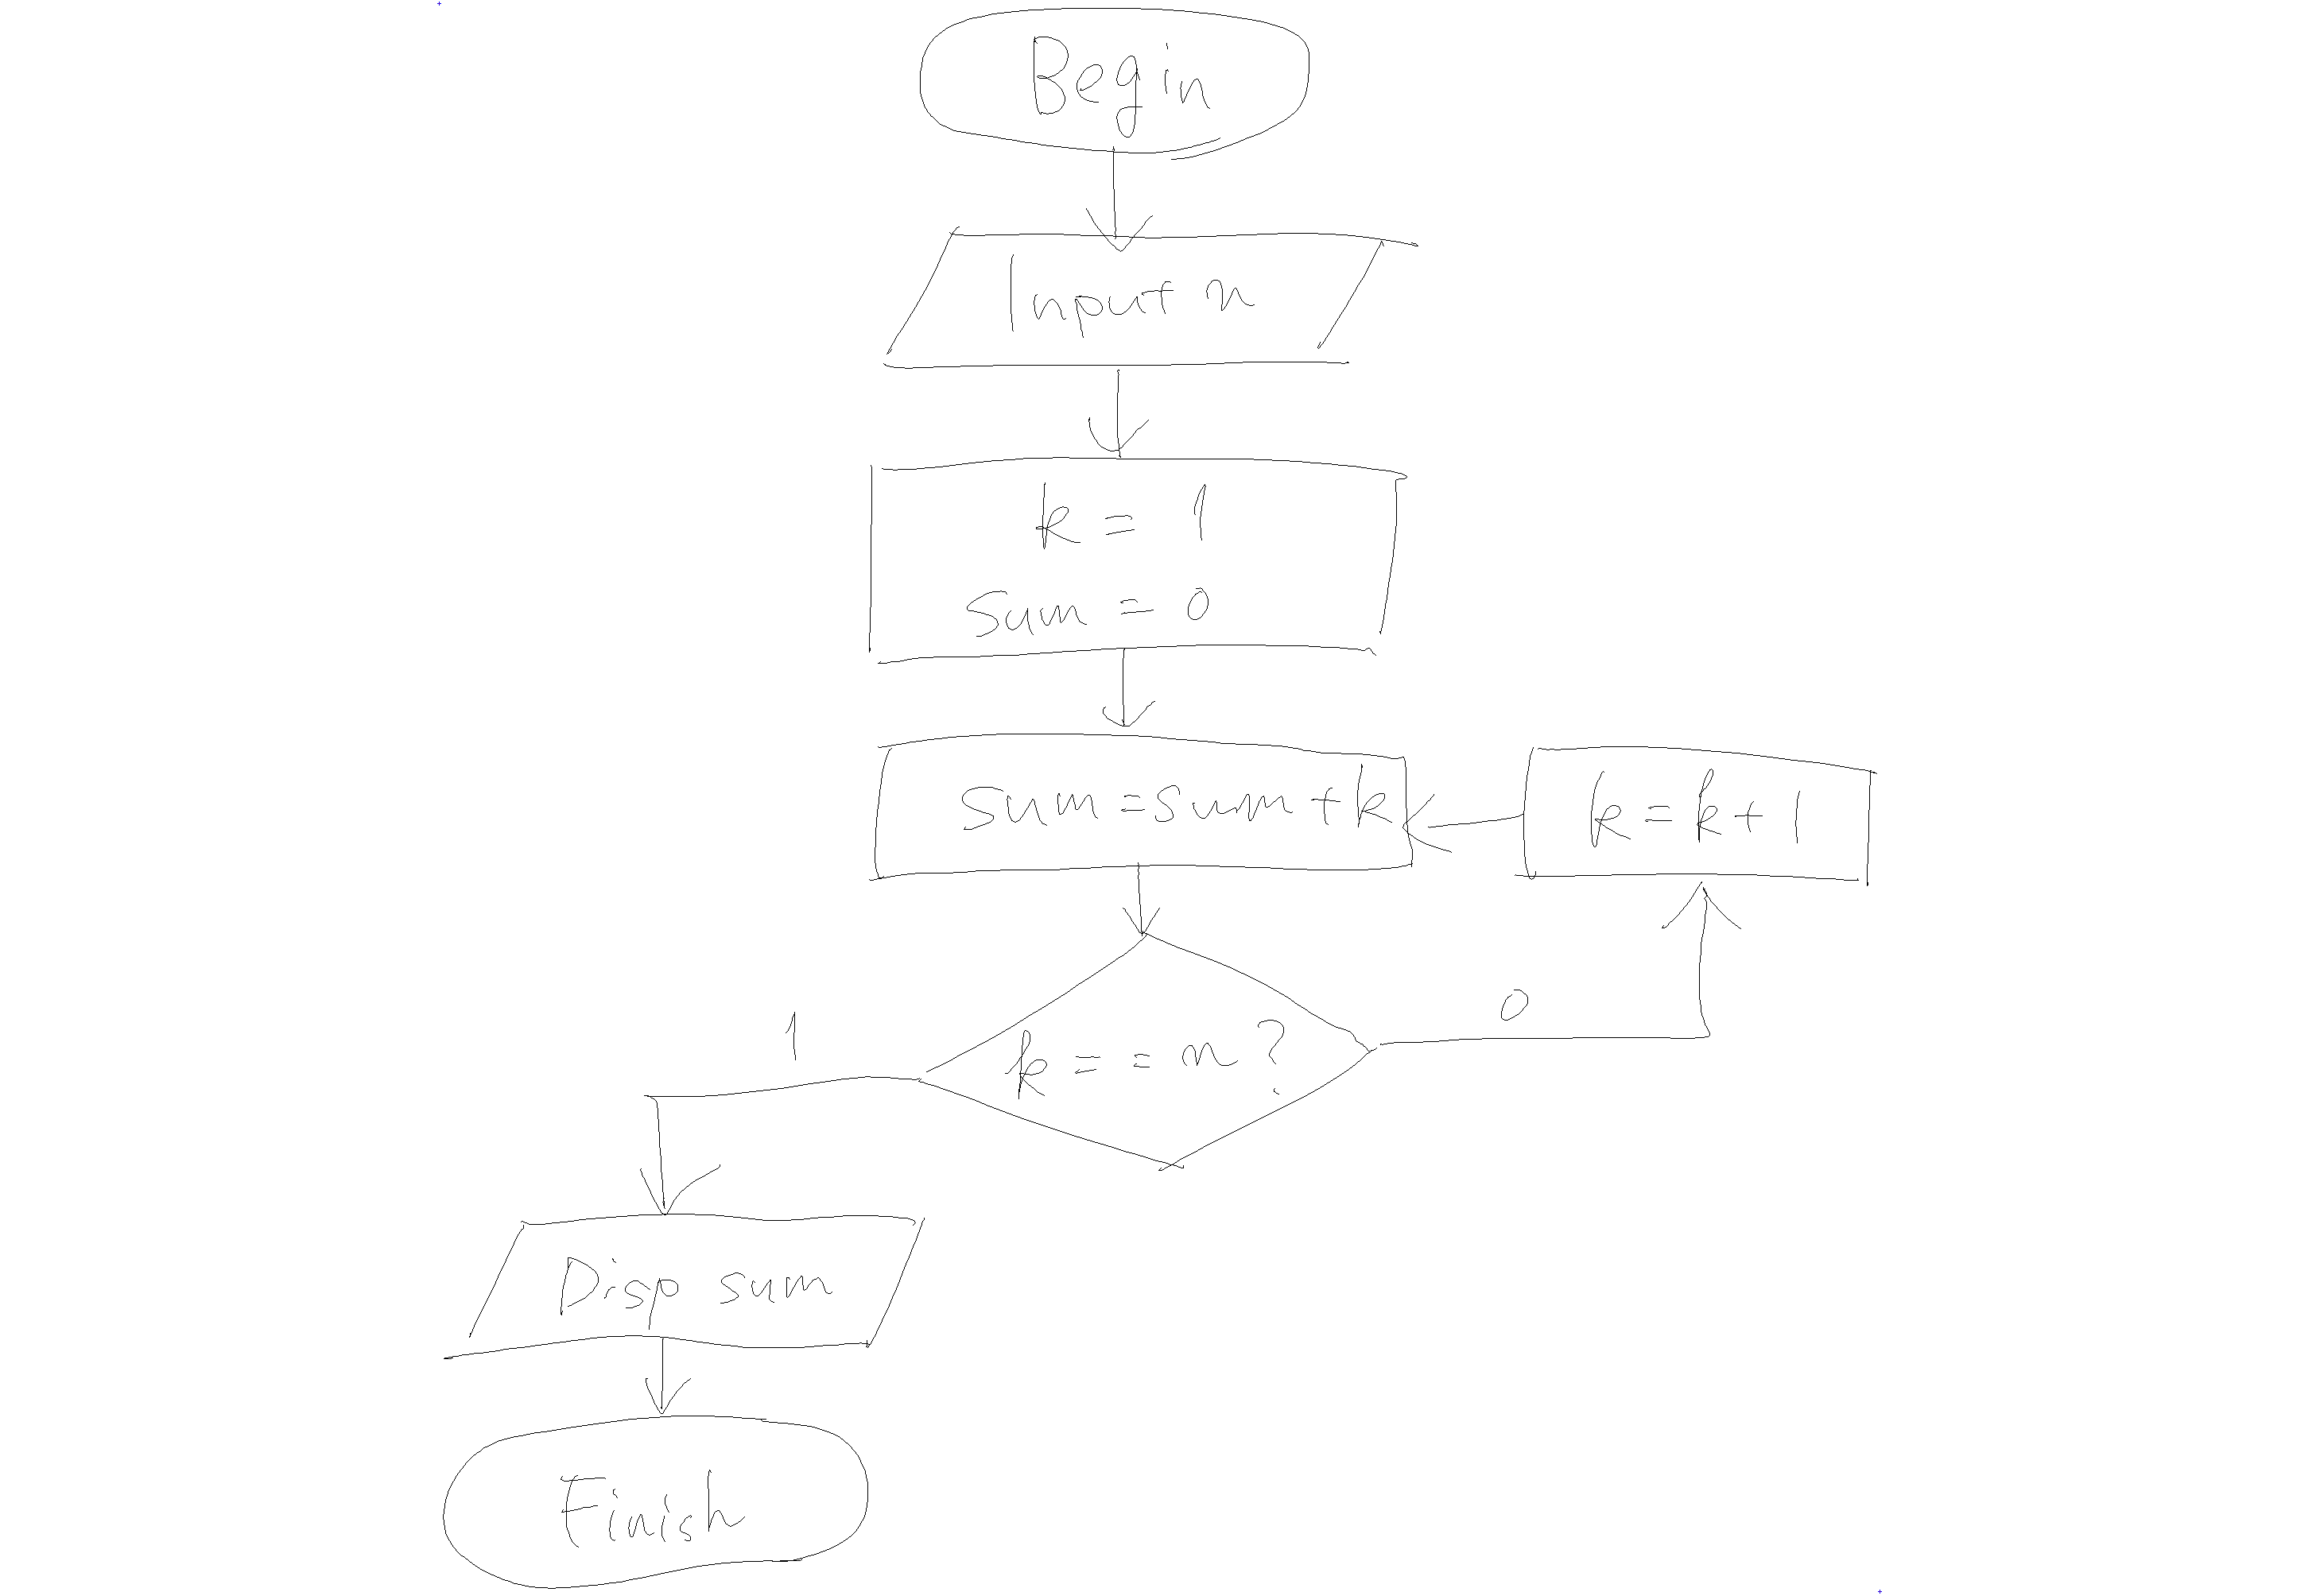 Begin
Input n
k = 1
sum = 0
sum=sum+k
k=k+1
k==n?
1
0
Disp sum
Finish